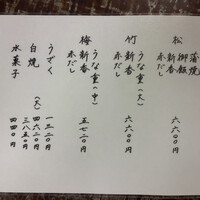 松
蒲焼
御飯
新香
赤だし
六六〇〇円
竹
うな重(大)
新香
赤だし
六六〇〇円
梅
うな重(中)
新香
赤だし
五七二〇円
うざく
一三二〇円
白焼
(大)
四六二〇円
三八五〇円
水菓子
四四〇円